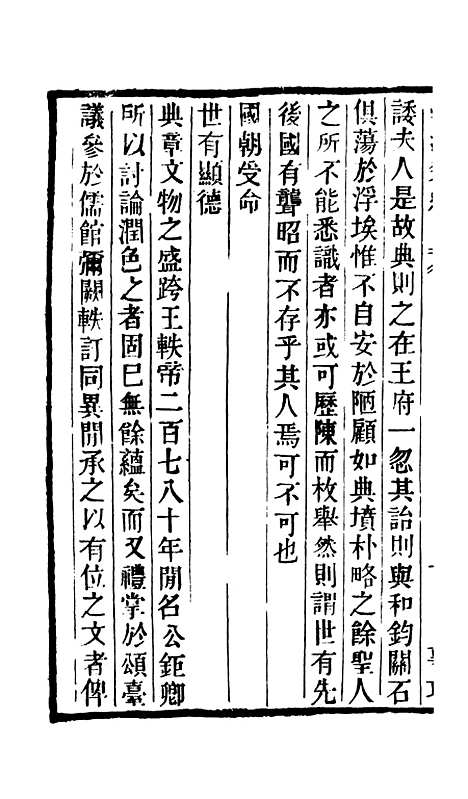 諉夫人是故典則之在王府一忽其詒則與和鈞關石
俱蕩於浮埃惟不自安於陋顧如典墳朴略之餘聖人
之所不能悉識者亦或可歷陳而枚舉然則謂世有先
後國有聾昭而不存乎其人焉可不可也
國朝受命
世有顯德
典章文物之盛跨王軼帝二百七八十年閒名公鉅卿
所以討論潤色之者固已無餘蘊矣而又禮掌於頌臺
議參於儒館彌闕軼訂同異閒承之以有位之文者俾